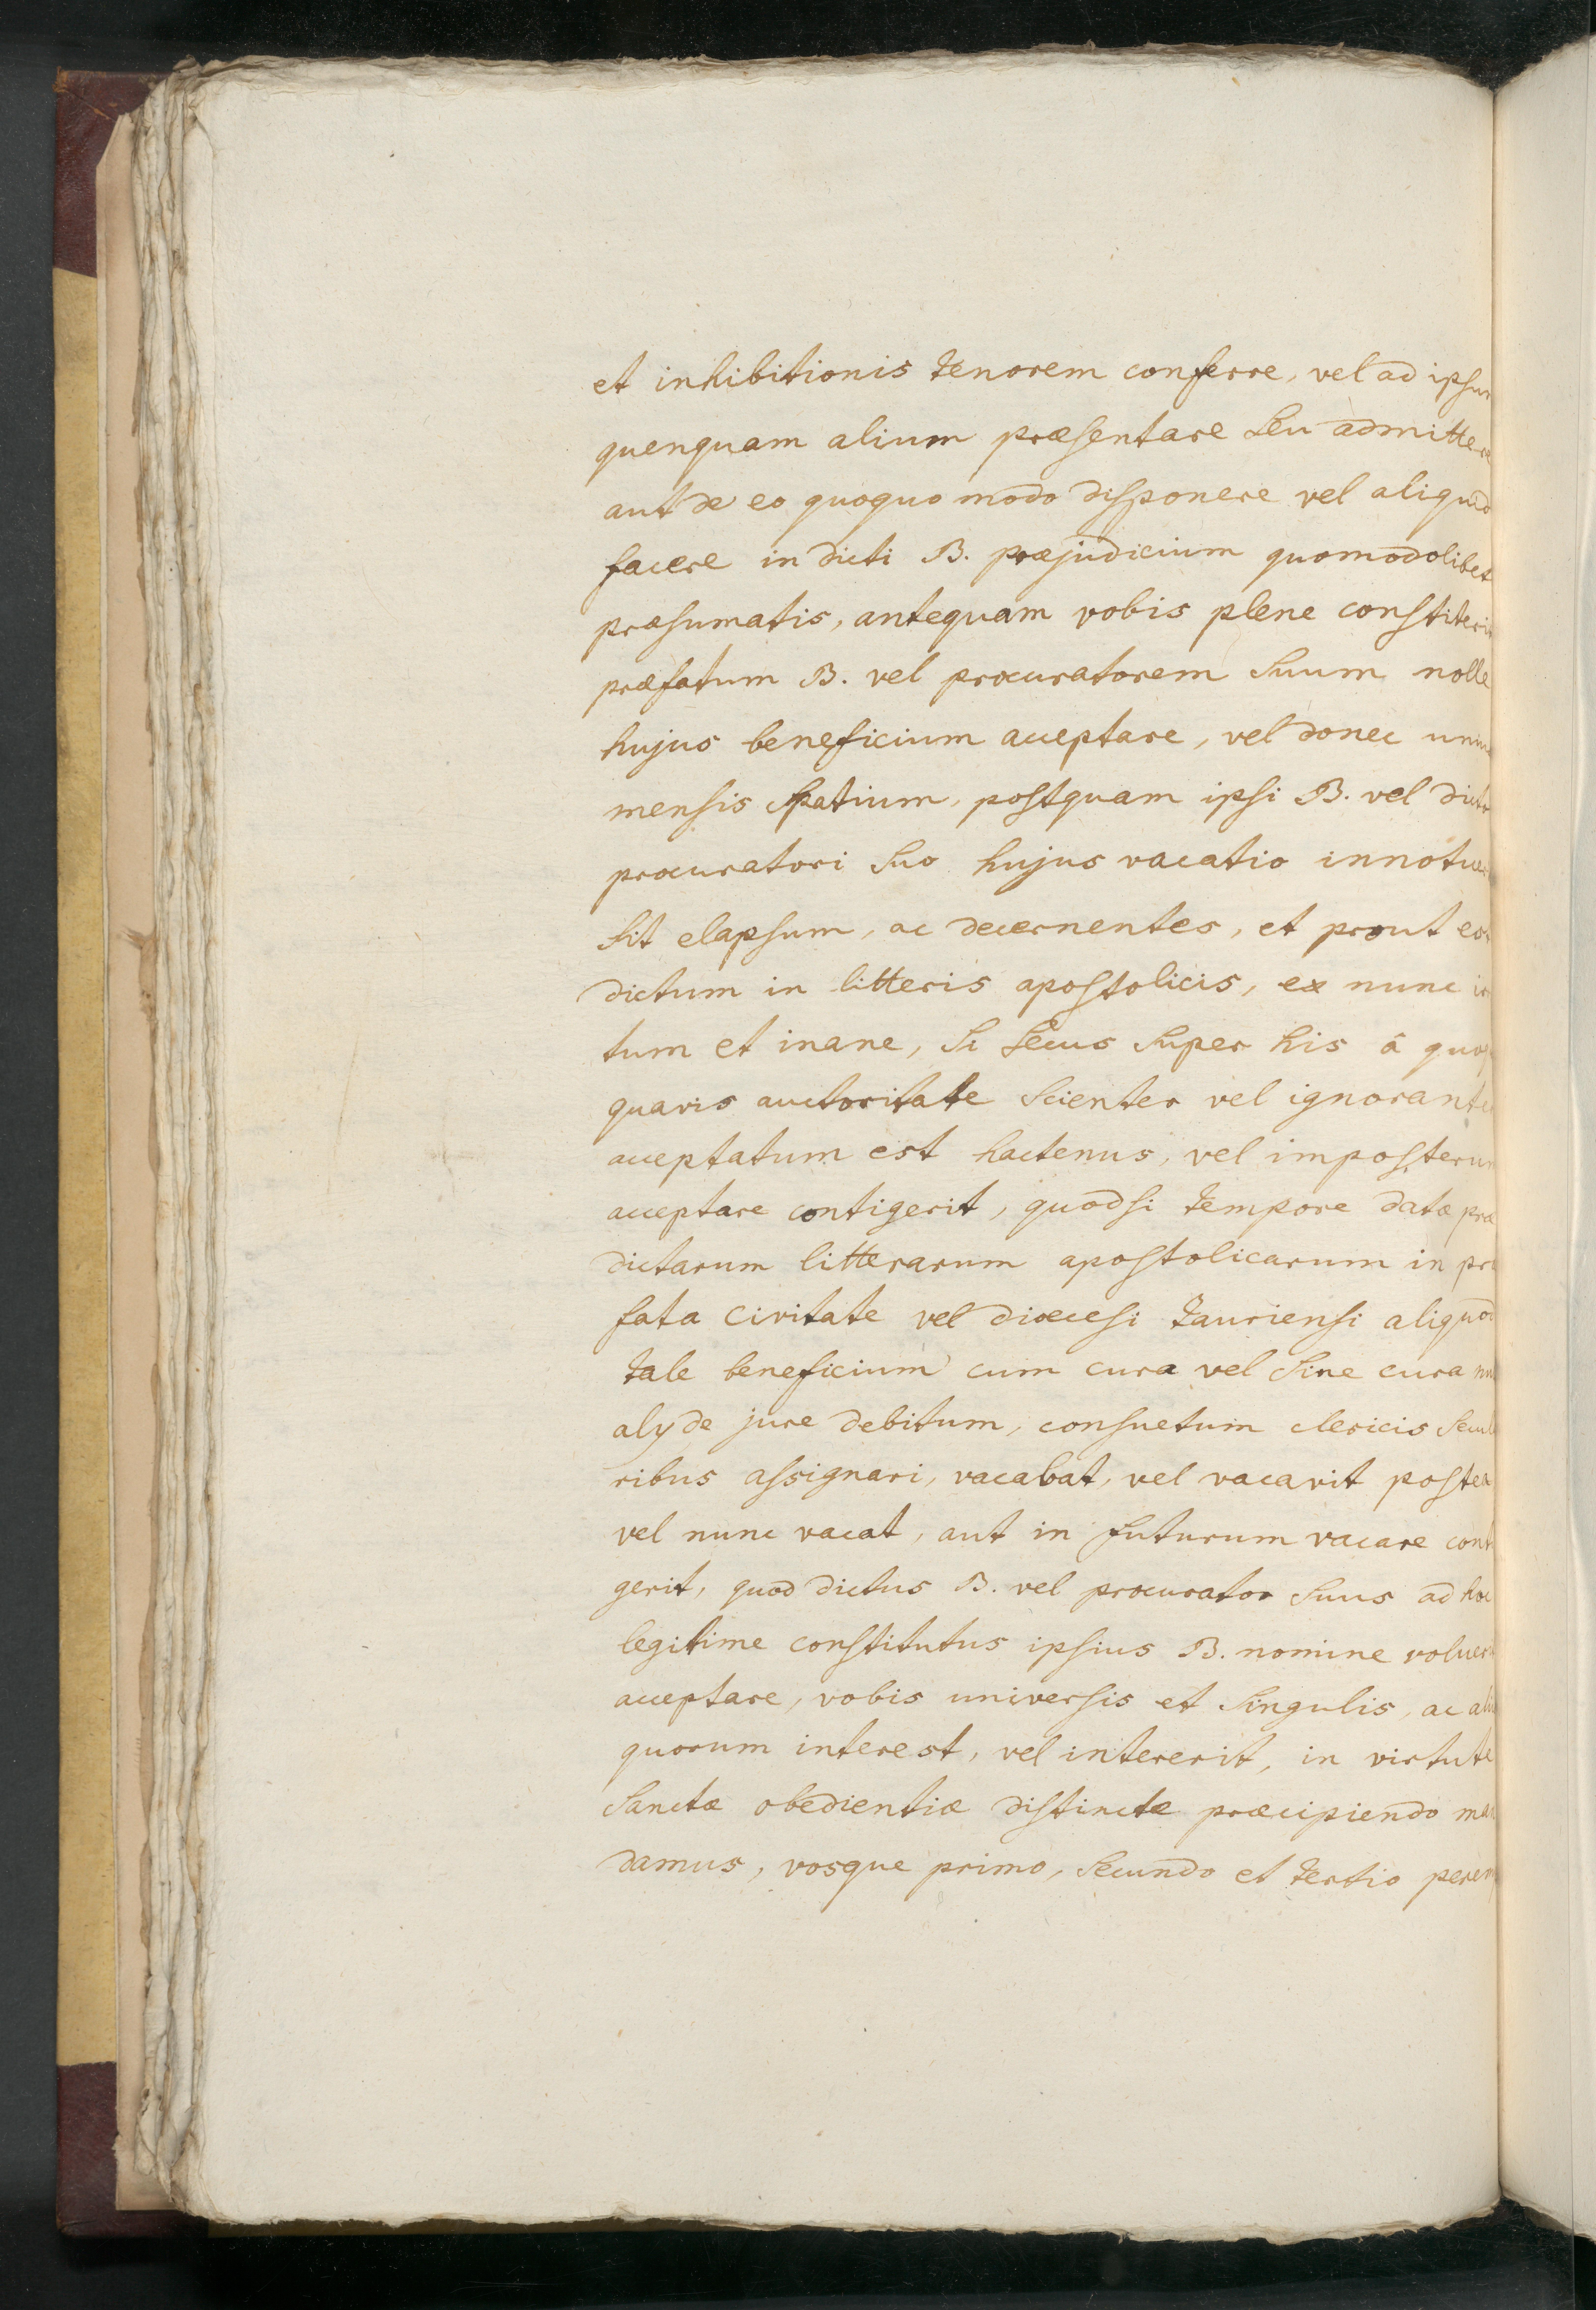 et inhibitionis tenorem conferre, vel ad ipsum
quenquam alium præsentare seu admittere
aut de eo quoquo modo disponere vel aliquid
facere in dicti B. præjudicium quomodolibet
præsumatis, antequam vobis plene constiterit
præfatum B. vel procuratorem suum nolle
hujus beneficium acceptare, vel donec unius
mensis spatium, postquam ipsi B. vel dicto
procuratori suo hujus vacatio innotuer
sit elapsum, ac decernentes, et prout est
dictum in litteris apostolicis, ex nunc ir
tum et inane, si secus super his â quoq
quavis auctoritate scienter vel ignoranter
acceptatum est hactenus, vel imposterum
acceptare contigerit, quodsi tempore datæ præ
dictarum litterarum apostolicarum in præ
fata civitate vel diœcesi tauriensi aliquod
tale beneficium cum cura vel sine cura
aly de jure debitum, consuetum clericis secula
ribus assignari, vacabat, vel vacavit postea
vel nunc vacat, aut in futurum vacare conti
gerit, quod dictus B. vel procurator suus ad hoc
legitime constitutus ipsius B. nomine voluer
acceptare, vobis universis et singulis, ac aliis
quorum interest, vel intererit, in virtute
sanctæ obedientiæ distincte præcipiendo man
damus, vosque primo, secundo et tertio perem